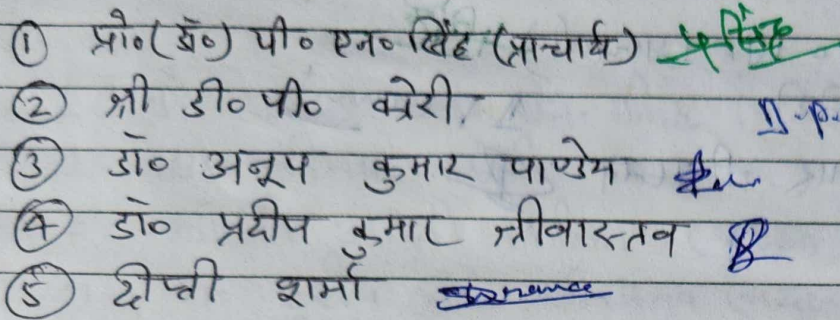 ① प्रो०(डॉ०) पी० एन० सिंह (प्राचार्य)
② श्री डी० पी० क्रेरी. D.P.
③ डॉ० अनूप कुमार पाण्डेय
④ डॉ० प्रदीप कुमार श्रीवास्तव
⑤ दीप्ती शर्मा